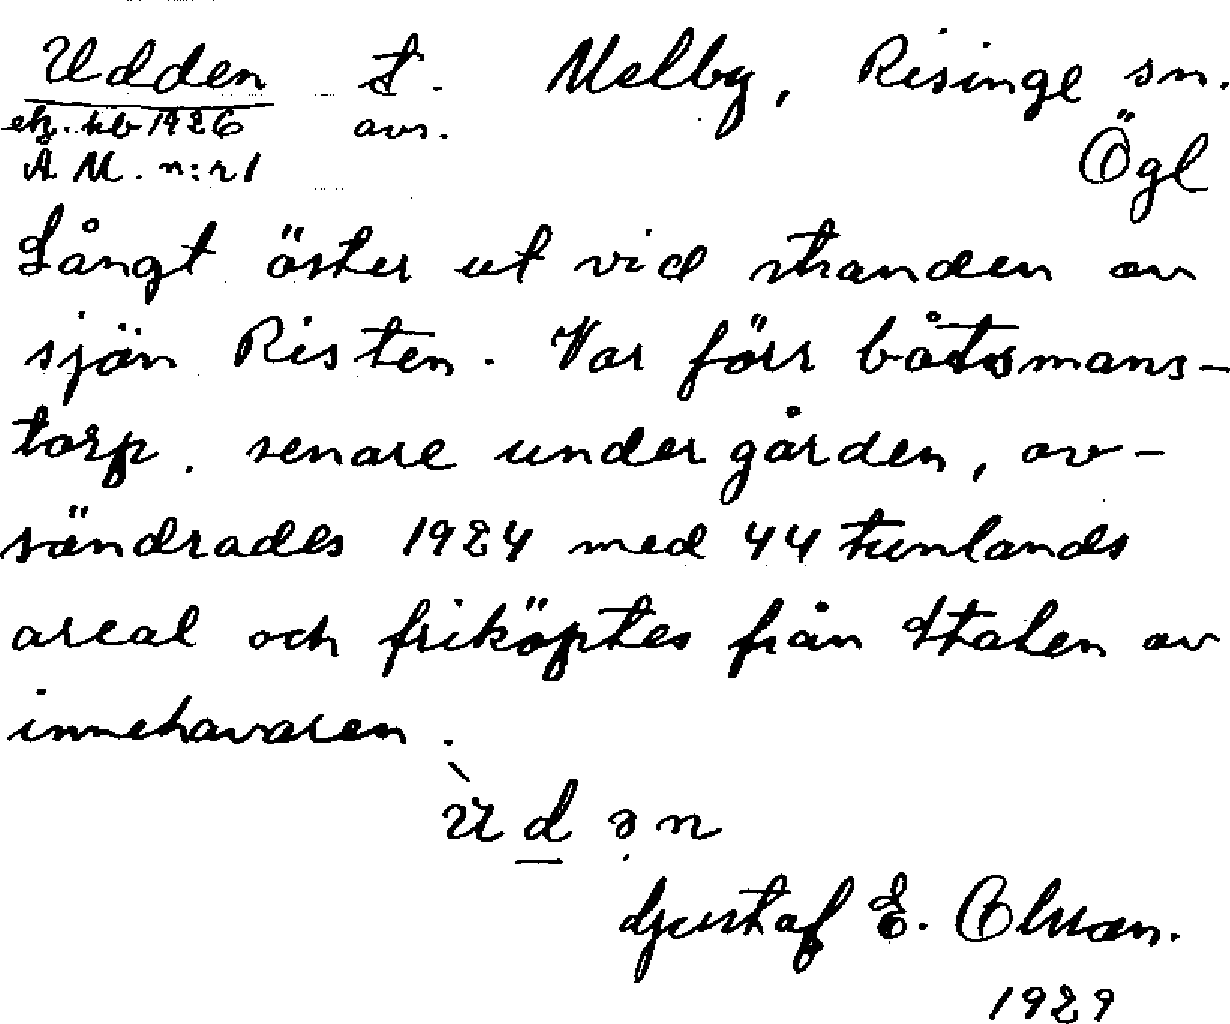 Udden t. Melby, Risinge sn.
kb 1926 avs. Ögl
A M. n:r 1
Långt öster ut vid stranden av
sjön Risten. Var förr båtsmans-
torp. senare under gården, av-
söndrades 1924 med 44 tunlands
areal och friköptes från Staten av
innehavaren.
Ùdən
Gustaf E. Olsson.
1929